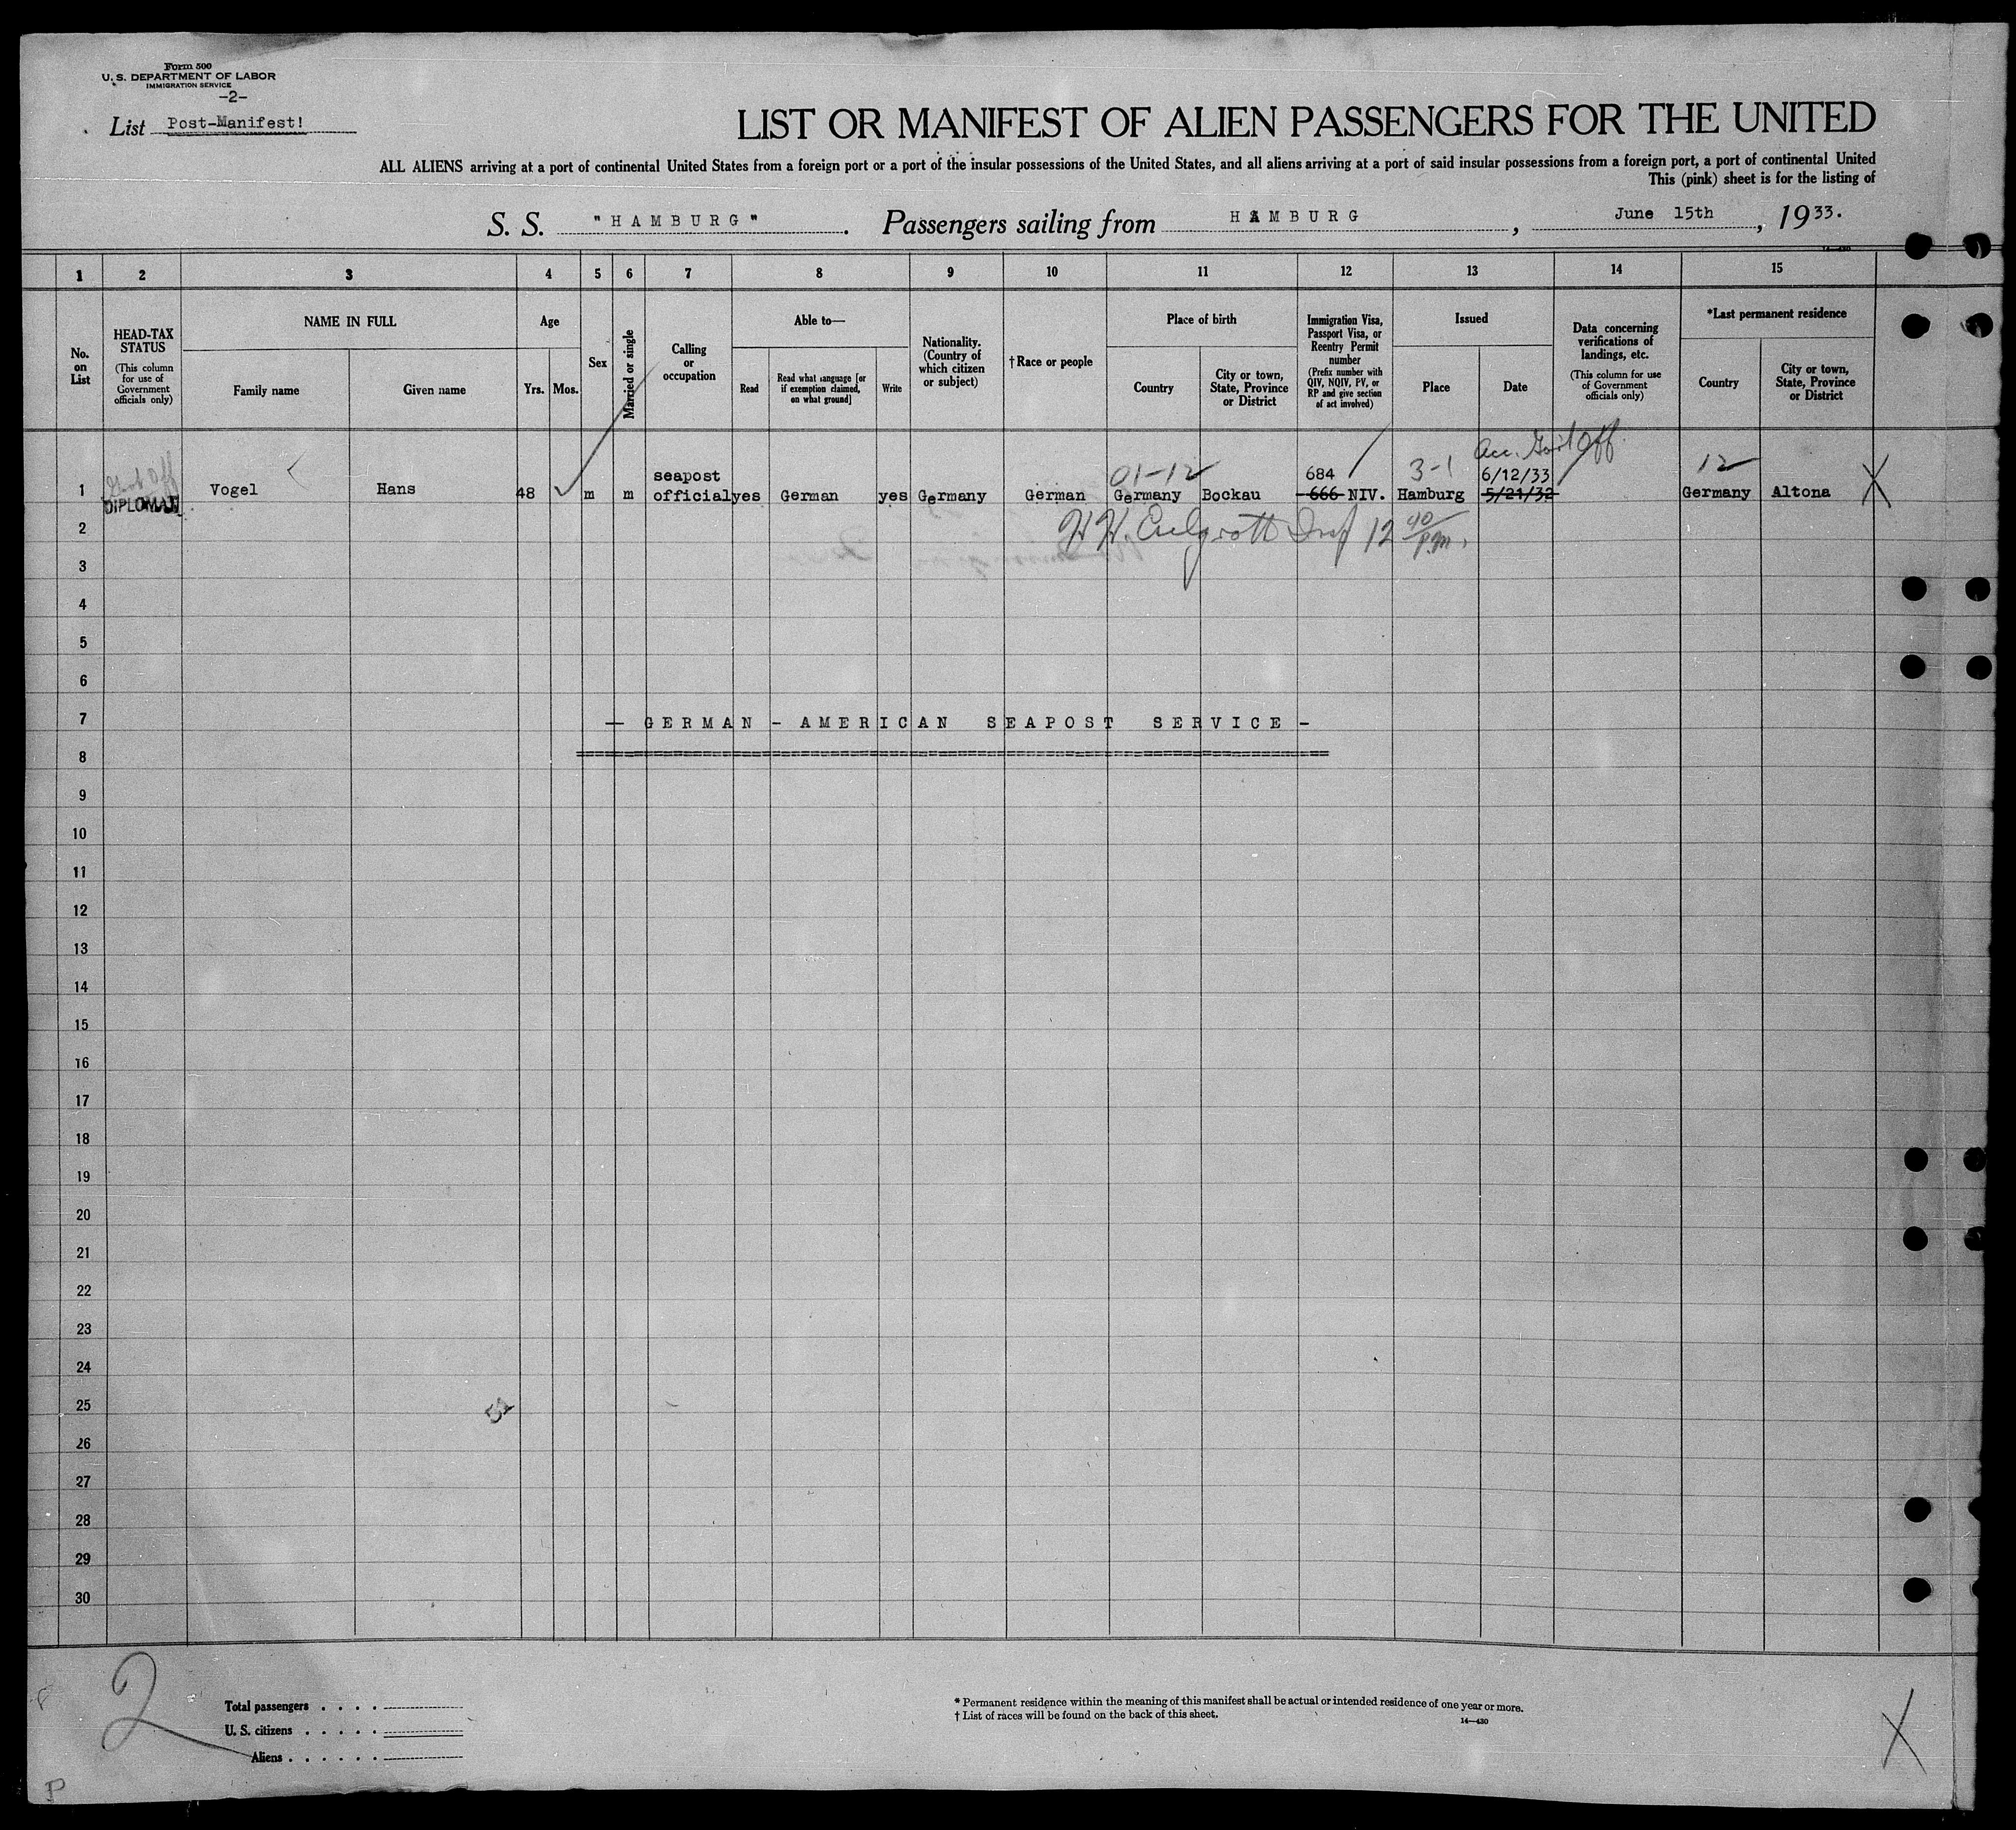 Form 500
U. S. DEPARTMENT OF LABOR
IMMIGRATION SERVICE
-2-
List Post-Manifest!
LIST OR MANIFEST OF ALIEN PASSENGERS FOR THE UNITED
ALL ALIENS arriving at a port of continental United States from a foreign port or a port of the insular possessions of the United States, and all aliens arriving at a port of said insular possessions from a foreign port, a port of continental United
This (pink) sheet is for the listing of
S. S. "HAMBURG". Passengers sailing from HAMBURG, June 15th, 1933.
14-430
1 2 3 4 5 6 7 8 9 10 11 12 13 14 15
No. on List
HEAD-TAX STATUS
(This column for use of Government officials only)
NAME IN FULL
Family name
Given name
Age
Yrs.
Mos.
Sex
Married or single
Calling or occupation
Able to—
Read
Read what language [or if exemption claimed, on what ground]
Write
Nationality. (Country of which citizen or subject)
†Race or people
Place of birth
Country
City or town, State, Province or District
Immigration Visa, Passport Visa, or Reentry Permit number
(Prefix number with QIV, NQIV, PV, or RP and give section of act involved)
Issued
Place
Date
Data concerning verifications of landings, etc.
(This column for use of Government officials only)
*Last permanent residence
Country
City or town, State, Province or District
Off.
01-12 684 3-1 6/12/33 12
1 DIPLOMAT Vogel Hans 48 m m seapost official yes German yes Germany German Germany Bockau 666 NIV. Hamburg 5/21/32 Germany Altona X
2 H. H. 12 40/P.M.
3
4
5
6
7 - GERMAN - AMERICAN SEAPOST SERVICE -
8
9
10
11
12
13
14
15
16
17
18
19
20
21
22
23
24
25
26
27
28
29
30
2
Total passengers
U. S. citizens
Aliens
* Permanent residence within the meaning of this manifest shall be actual or intended residence of one year or more.
† List of races will be found on the back of this sheet.
14-430
X
P